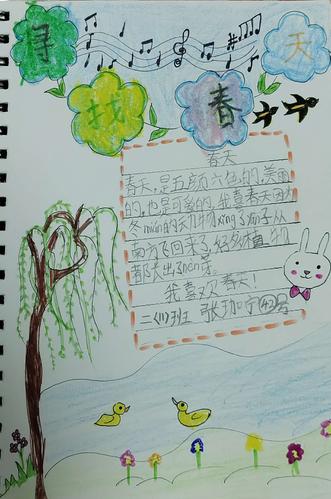 寻找春天
春天
春天,是五颜六色的,美丽
的,也是可爱的,我喜春天因为
冬mián的动物xǐng了,yàn子从
南方飞回来了,好多植物
都长出了nèn芽。
我喜欢春天!
二(11)班 张珈宁(42)号